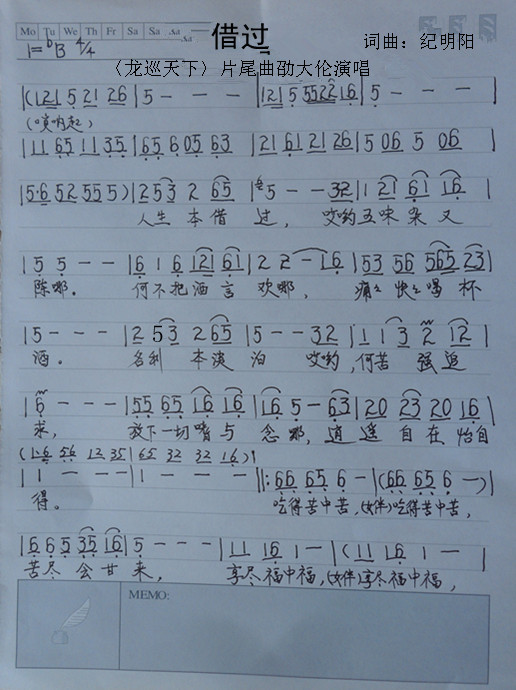 Mo Tu We Th Fr Sa Su
借过
1=♭B 4/4
词曲：纪明阳
〈龙巡天下〉片尾曲劭大伦演唱
|(121 5 21 26 |5 - - - |121 5 5522 16 |5 - - - |
(唢呐起)
|11 65 11 35 |65 6 05 63 |21 61 21 26 |5 06 5 06 |
|5·6 52 55 5) |2 53 2 65 |5 - - 32 |1 21 61 16 |
人生 本借 过， 哎哟五味杂又
|5 5 - - |6 1 6 121 61 |2 2 - 16 |53 56 565 23 |
陈哪。 何不把酒言 欢哪， 痛快喝杯
|5 - - - |2 53 2 65 |5 - - 32 |1 1 3 2 12 |
酒。 名利 本淡 泊 哎哟，何苦 强追
|6 - - - |55 65 16 16 |16 5 - 63 |20 23 20 16 |
求， 放下一切嗔与 念哪，逍遥自在怡自
(1·6 56 12 35 |65 32 32 16)
|1 - - - |1 - - - ||: 66 65 6 - |(66 65 6 -)|
得。 吃得苦中苦，(女伴)吃得苦中苦，
|6 6 5 35 16 |5 - - - |11 16 1 - |(11 16 1 - |
苦尽会甘来， 享尽福中福，(女伴)享尽福中福，
MEMO: